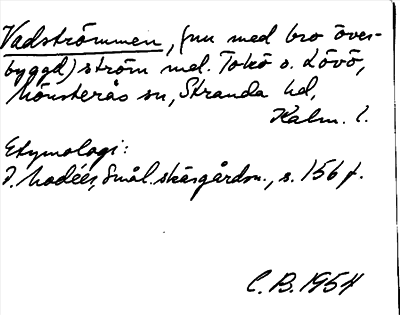 Vadströmmen, (nu med bro över-
byggd) ström mel. Tokö o. Lövö,
Mönsterås sn, Stranda hd,
Kalm. l.
Etymologi:
J. Modéer, Smål. skärgårdsn., s. 156 f.
C. B. 1954